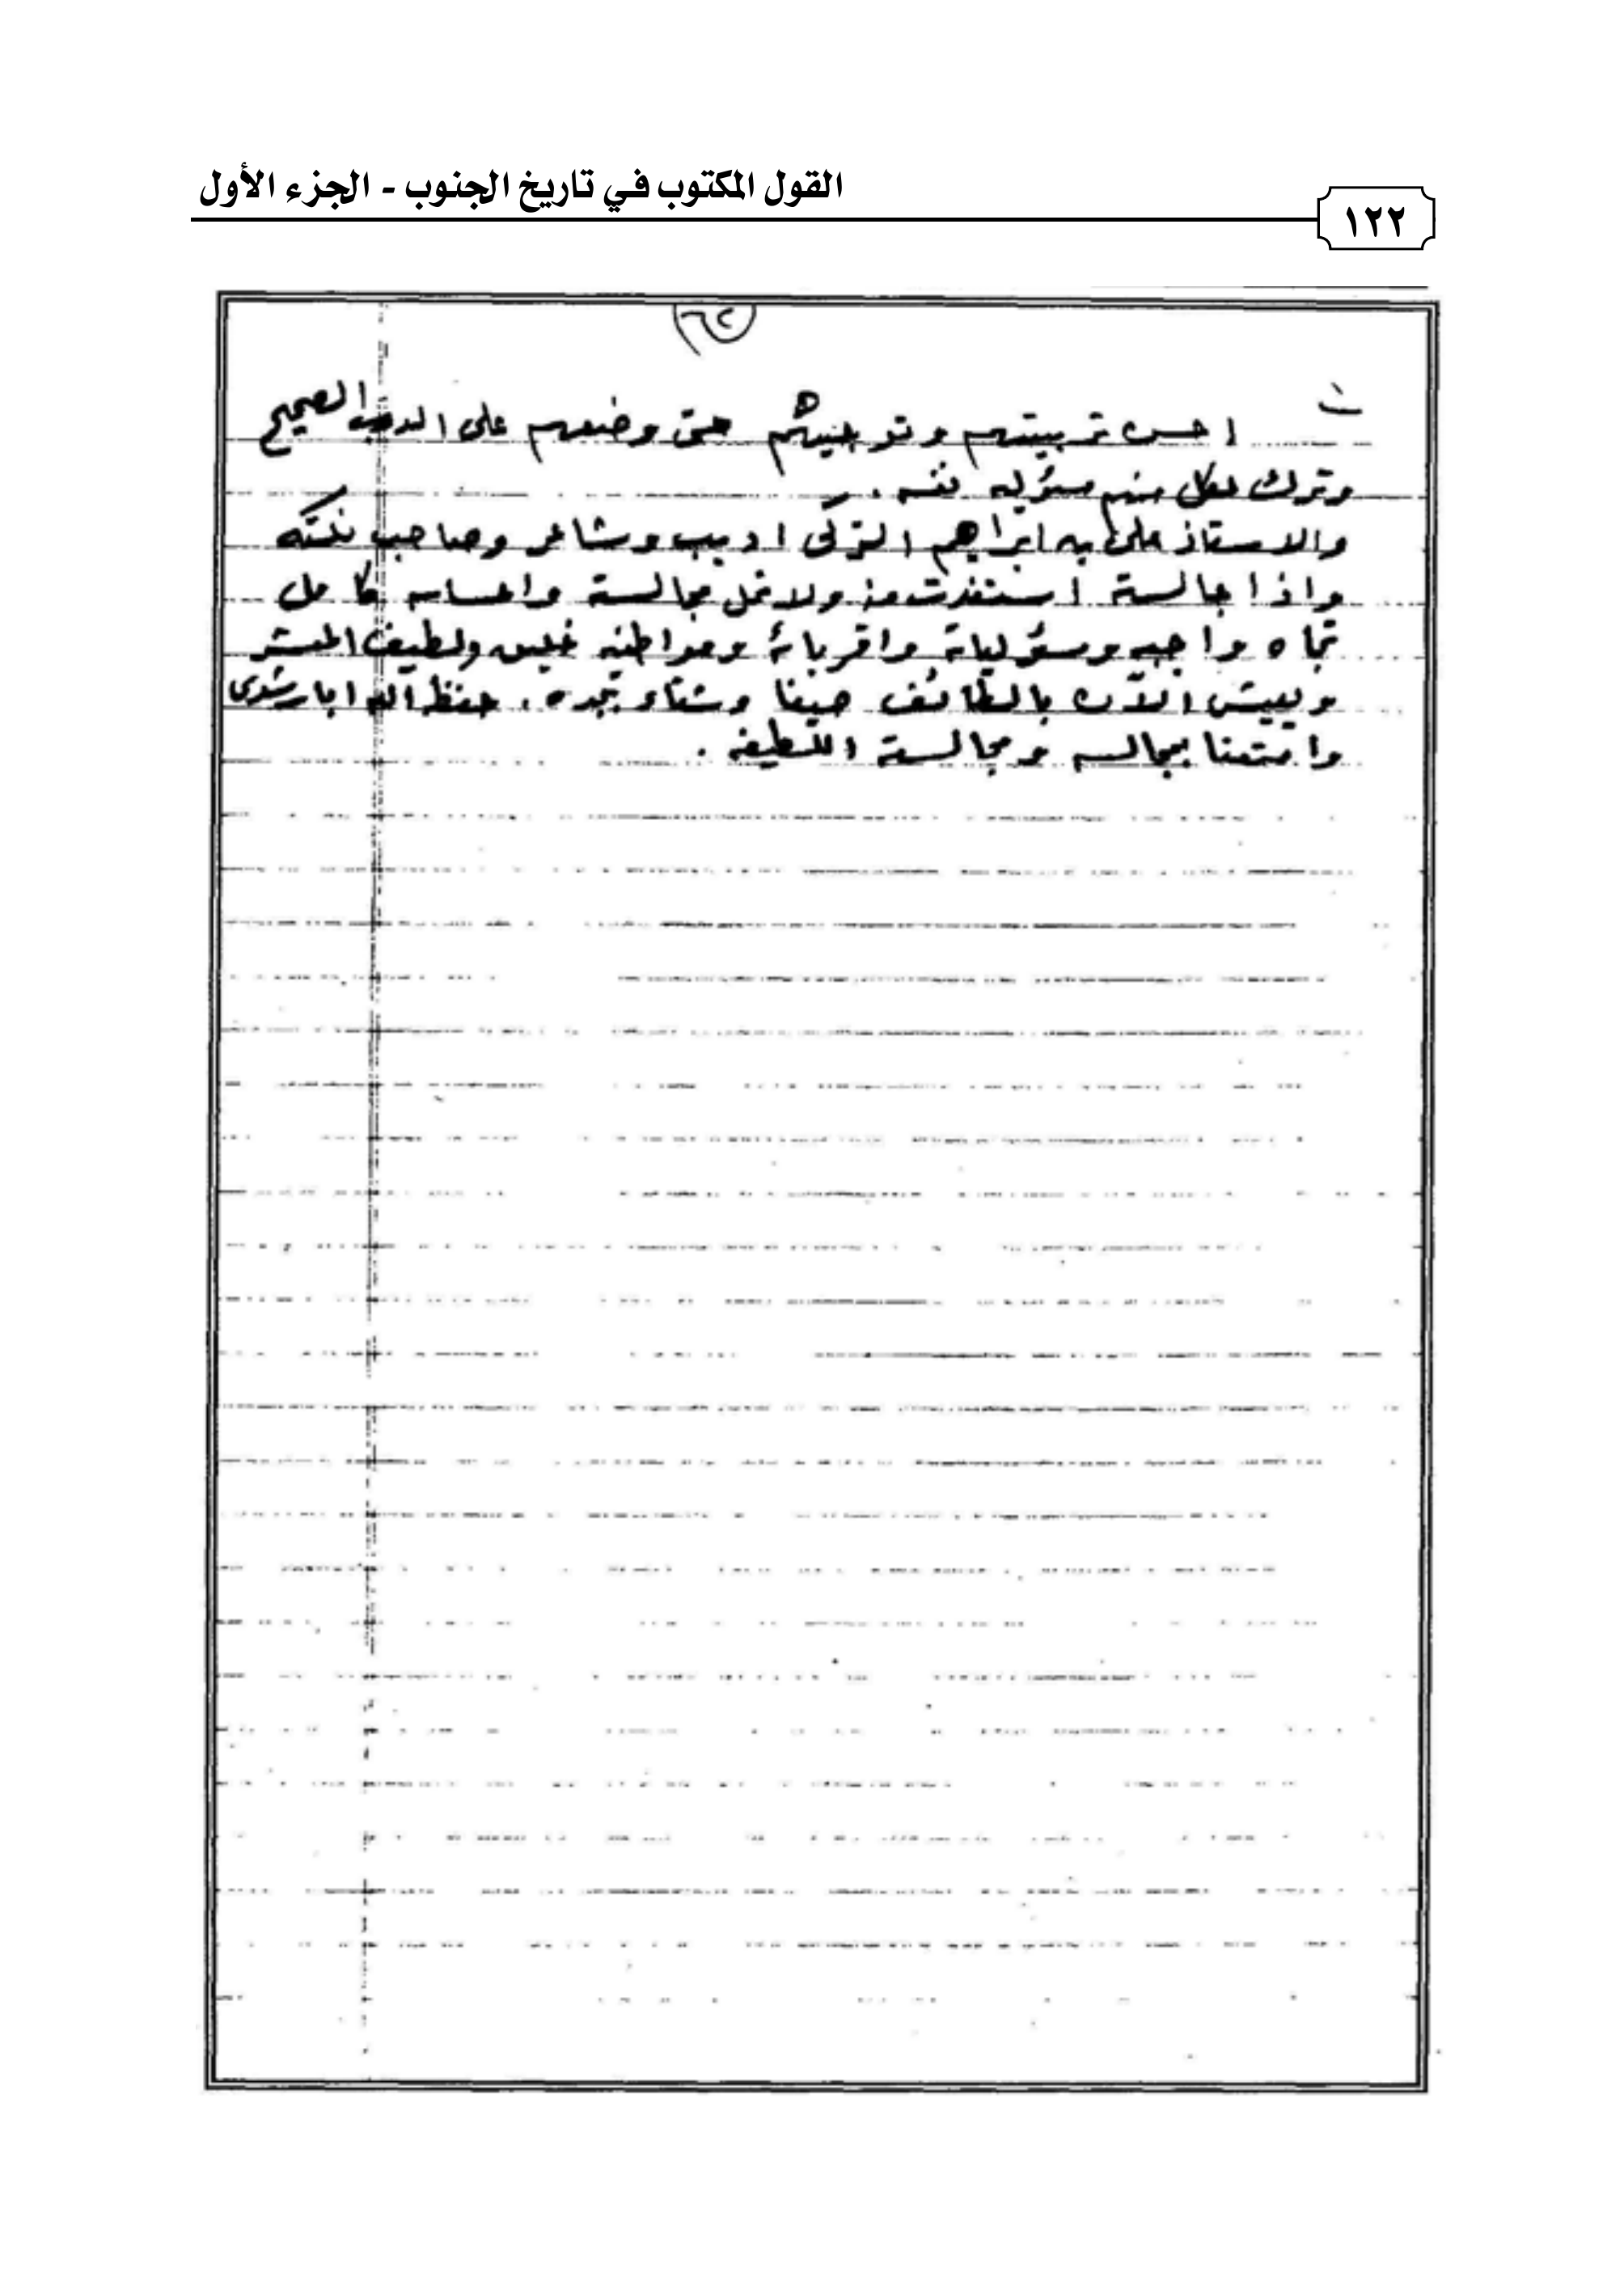 القول المكتوب في تاريخ الجنوب - الجزء الأول
١٢٢
احسن تربيتهم وتوجيههم حتى وضعهم على الدرب الصحيح
وترك لكل منهم مسؤليه نفسه .
والاستاذ علي بن ابراهيم التركي اديب وشاعر وصاحب نكته
واذا جالسته استفدت منه ولا تمل مجالسته واحساسه كامل
تجاه واجبه ومسؤلياته واقربائه ومواطنيه خليق ولطيف المعشر
ويعيش الآن بالطائف صيفا وشتاء بجده . حفظ الله ابا رشدي
وامتعنا بمجالسه ومجالسته اللطيفه .